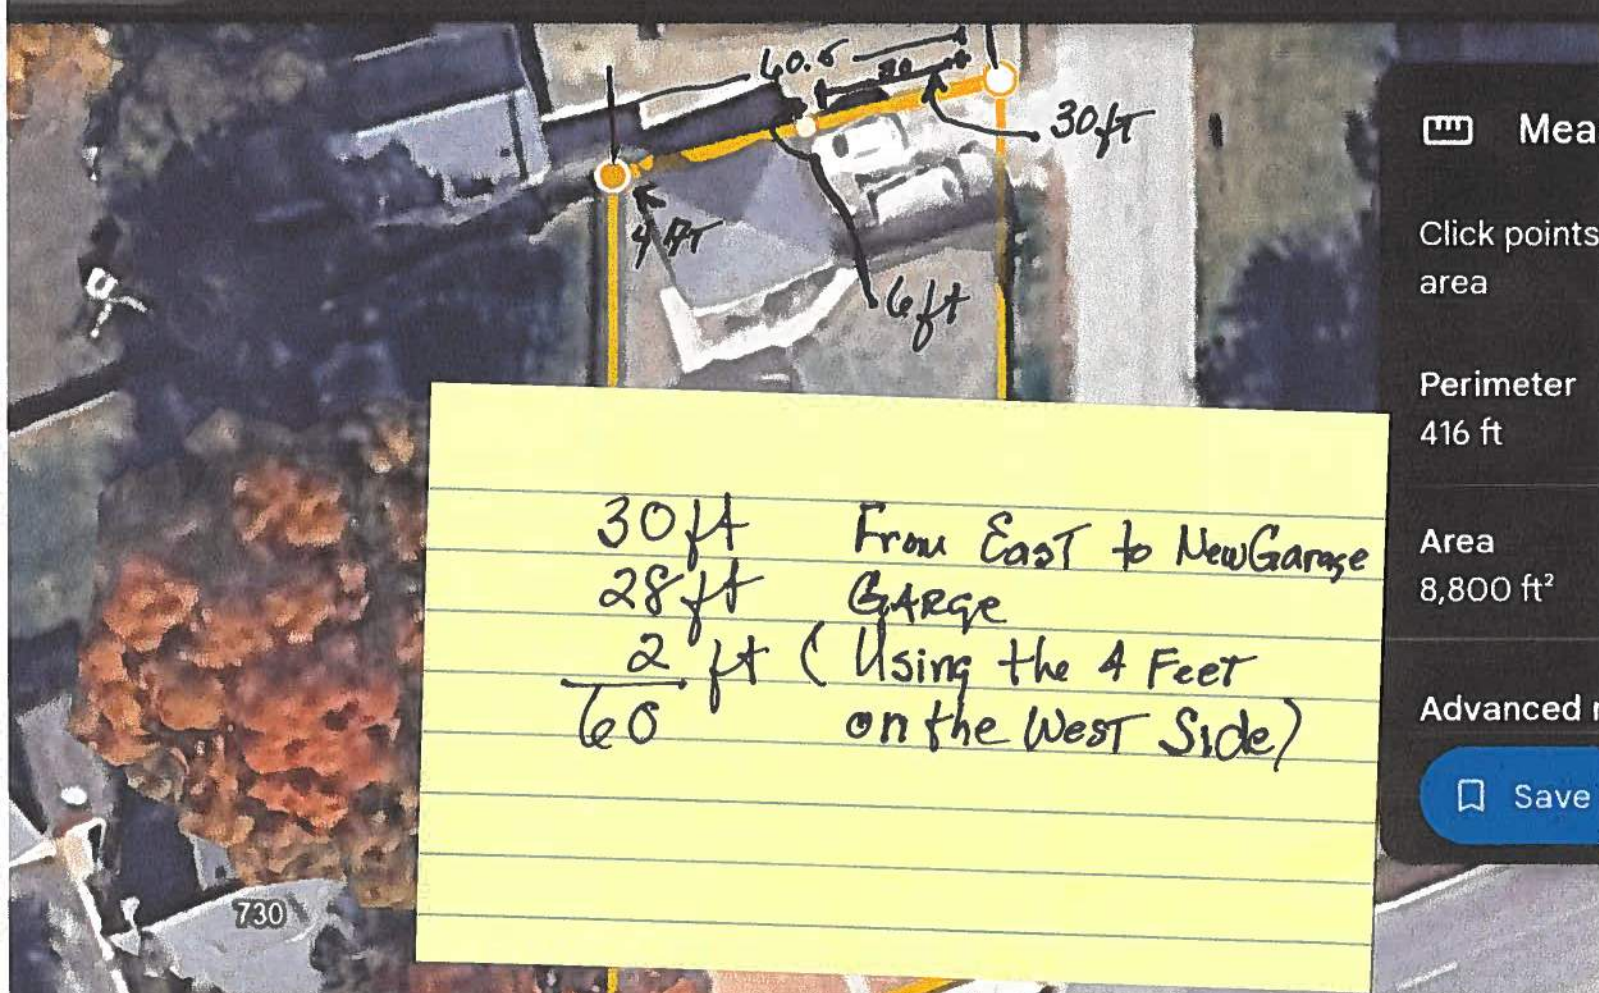 60.5
30
30ft
4 ft
6ft
Mea
Click points
area
Perimeter
416 ft
Area
8,800 ft²
Advanced r
Save
30ft From East to New Garage
28ft GARGE
2 ft ( Using the 4 Feet
60 on the West Side)
730